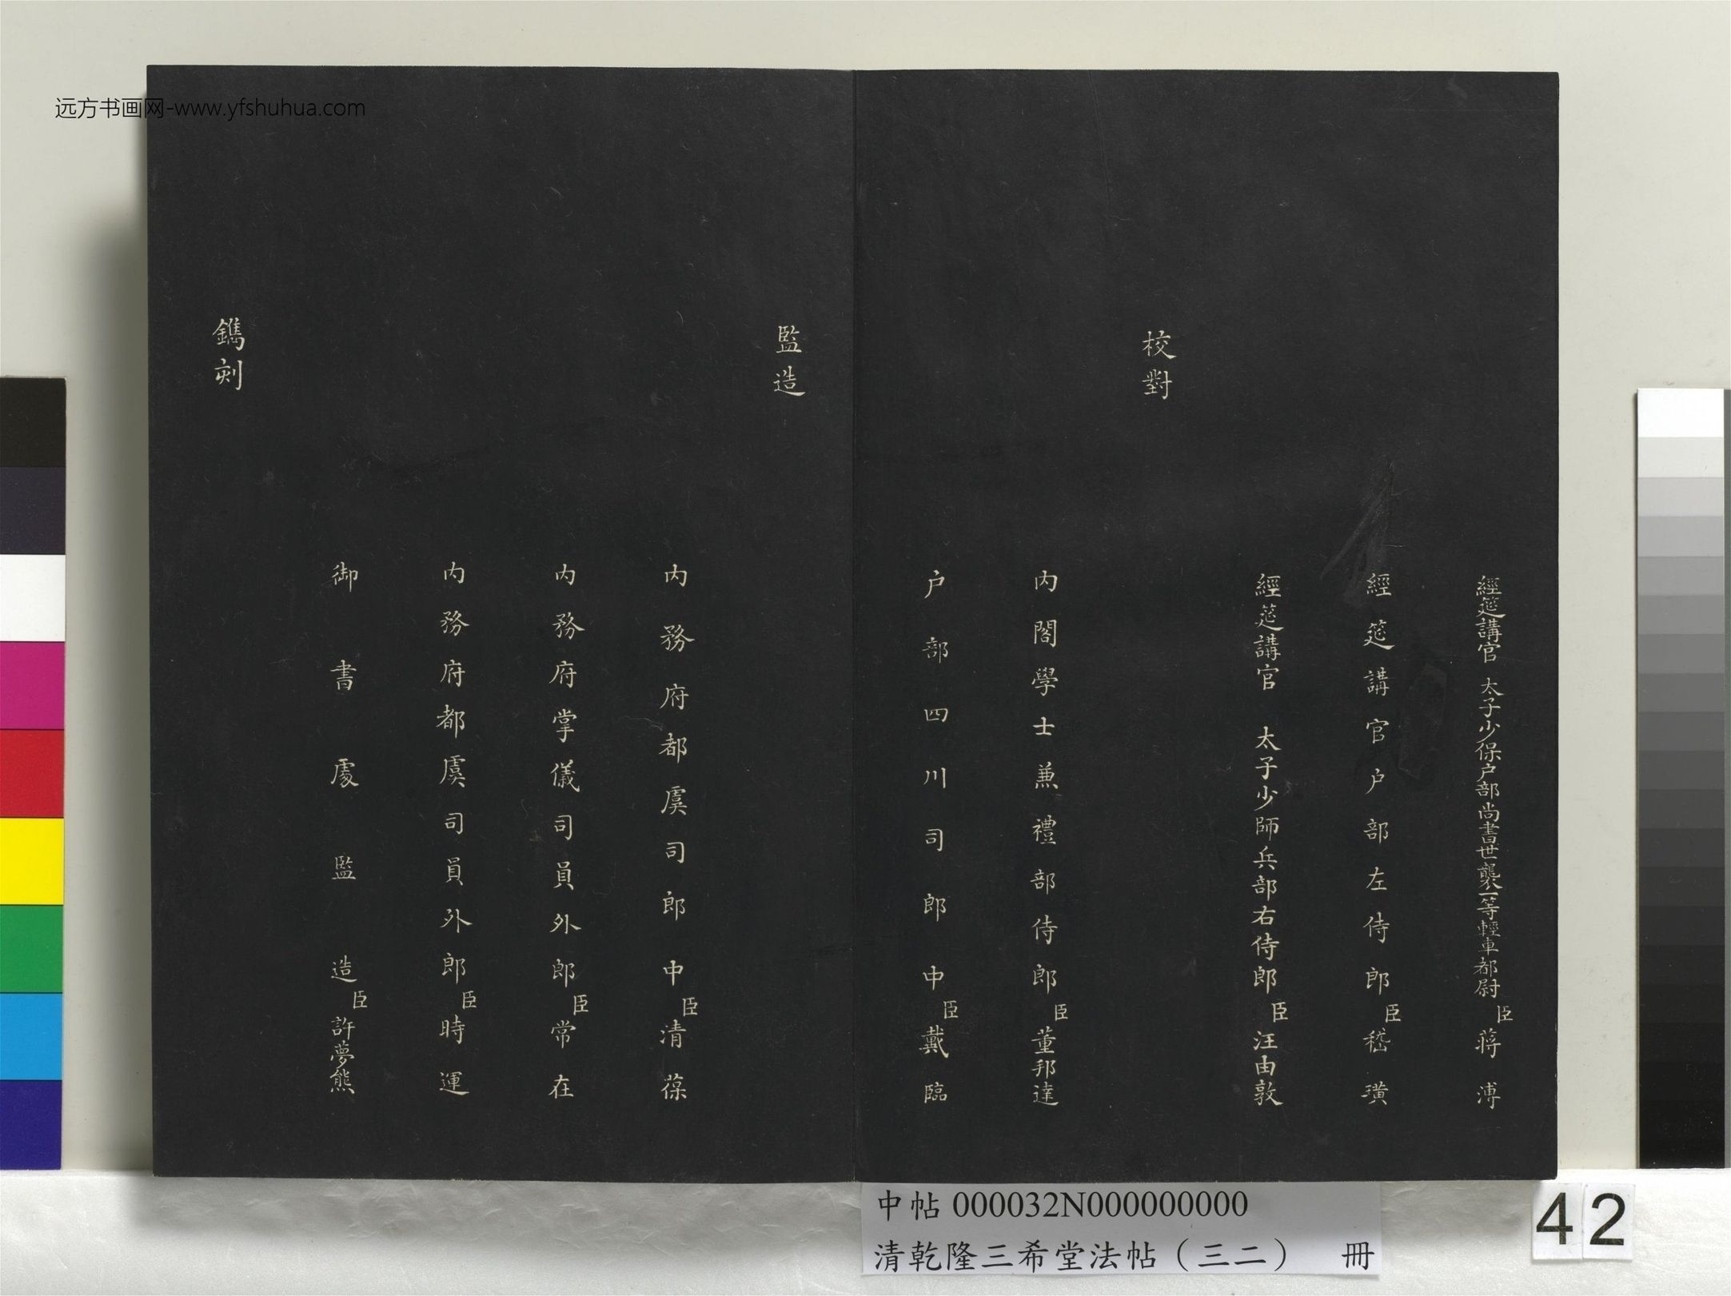 远方书画网-www.yfshuhua.com
經筵講官 太子少保户部尚書世襲一等輕車都尉臣蔣溥
經筵講官户部左侍郎臣嵇璜
經筵講官 太子少師兵部右侍郎臣汪由敦
校對
内閣學士兼禮部侍郎臣董邦達
户部四川司郎中臣戴臨
監造
内務府都虞司郎中臣清葆
内務府掌儀司員外郎臣常在
内務府都虞司員外郎臣時運
御書處監造臣許夢熊
鐫刻
中帖 000032N000000000
清乾隆三希堂法帖（三二） 冊
42